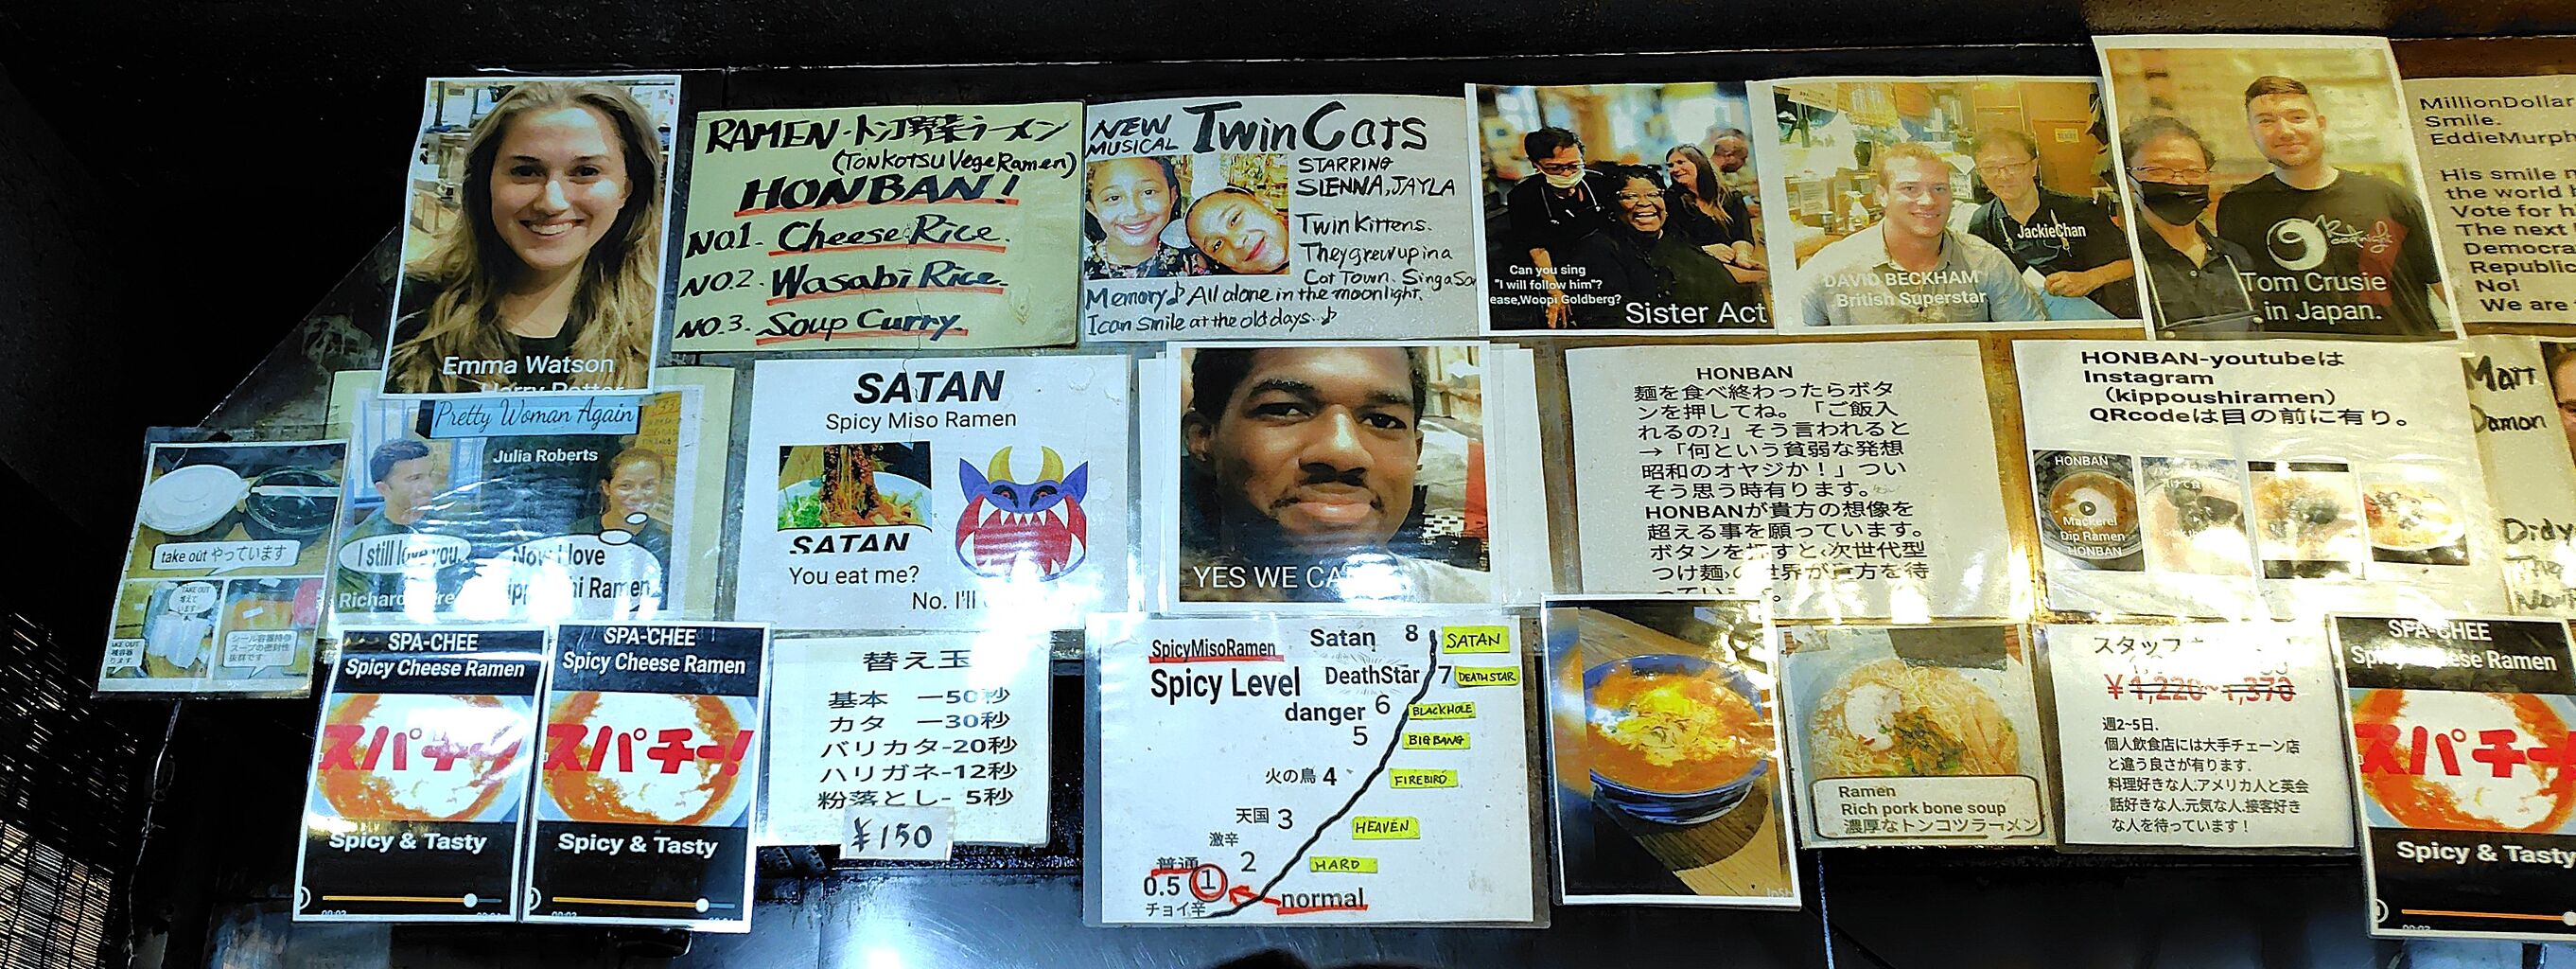 Emma Watson
Harry Potter
RAMEN・トンコツ野菜ラーメン
(TONKOTSU Vege Ramen)
HONBAN!
NO1. Cheese Rice.
NO.2. Wasabi Rice.
NO.3. Soup Curry.
NEW
MUSICAL
Twin Cats
STARRING
SIENNA, JAYLA
Twin Kittens.
They grew up in a
Cat Town. Sing a So
Memory♪ All alone in the moonlight.
I can smile at the old days..♪
Can you sing
"I will follow him"?
ease,Woopi Goldberg?
Sister Act
JackieChan
DAVID BECKHAM
British Superstar
Tom Crusie
in Japan.
MillionDollar
Smile.
EddieMurph
His smile
the world
Vote for h
The next
Democra
Republic
No!
We are
take out やっています
TAKE OUT
シール容器持参
スープの密封性
抜群です
Pretty Woman Again
Julia Roberts
I still love you.
Now I love
Ramen
Richard
SATAN
Spicy Miso Ramen
SATAN
You eat me?
No. I'll
YES WE CA
HONBAN
麺を食べ終わったらボタ
ンを押してね。「ご飯入
れるの?」そう言われると
→「何という貧弱な発想
昭和のオヤジか!」つい
そう思う時有ります。
HONBANが貴方の想像を
超える事を願っています。
ボタンを押すと、次世代型
つけ麺の世界が貴方を待
っています。
HONBAN-youtubeは
Instagram
(kippoushiramen)
QRcodeは目の前に有り。
HONBAN
Mackerel
Dip Ramen
HONBAN
Matt
Damon
SPA-CHEE
Spicy Cheese Ramen
スパチー!
Spicy & Tasty
SPA-CHEE
Spicy Cheese Ramen
スパチー!
Spicy & Tasty
替え玉
基本 ー50秒
カタ ー30秒
バリカタ-20秒
ハリガネ-12秒
粉落とし- 5秒
¥150
SpicyMisoRamen
Spicy Level
Satan 8 SATAN
DeathStar 7 DEATH STAR
danger 6 BLACKHOLE
5 BIGBANG
火の鳥 4 FIREBIRD
天国 3 HEAVEN
激辛 2 HARD
普通
0.5 1 normal
チョイ辛
Ramen
Rich pork bone soup
濃厚なトンコツラーメン
スタッフ
¥1,220~1,370
週2~5日.
個人飲食店には大手チェーン店
と違う良さが有ります.
料理好きな人.アメリカ人と英会
話好きな人.元気な人.接客好き
な人を待っています!
SPA-CHEE
Spicy Cheese Ramen
スパチー
Spicy & Tasty